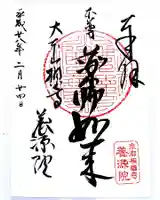 奉拝
本尊
薬師如来
大本山相国寺
養源院
平成廿八年二月廿四日
京都相国寺
養源院